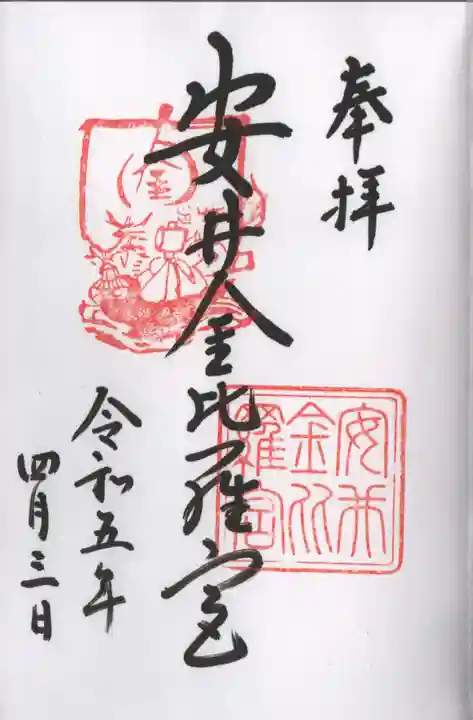 奉拝
安井金比羅宮
安井金比羅宮
令和五年
四月三日
金